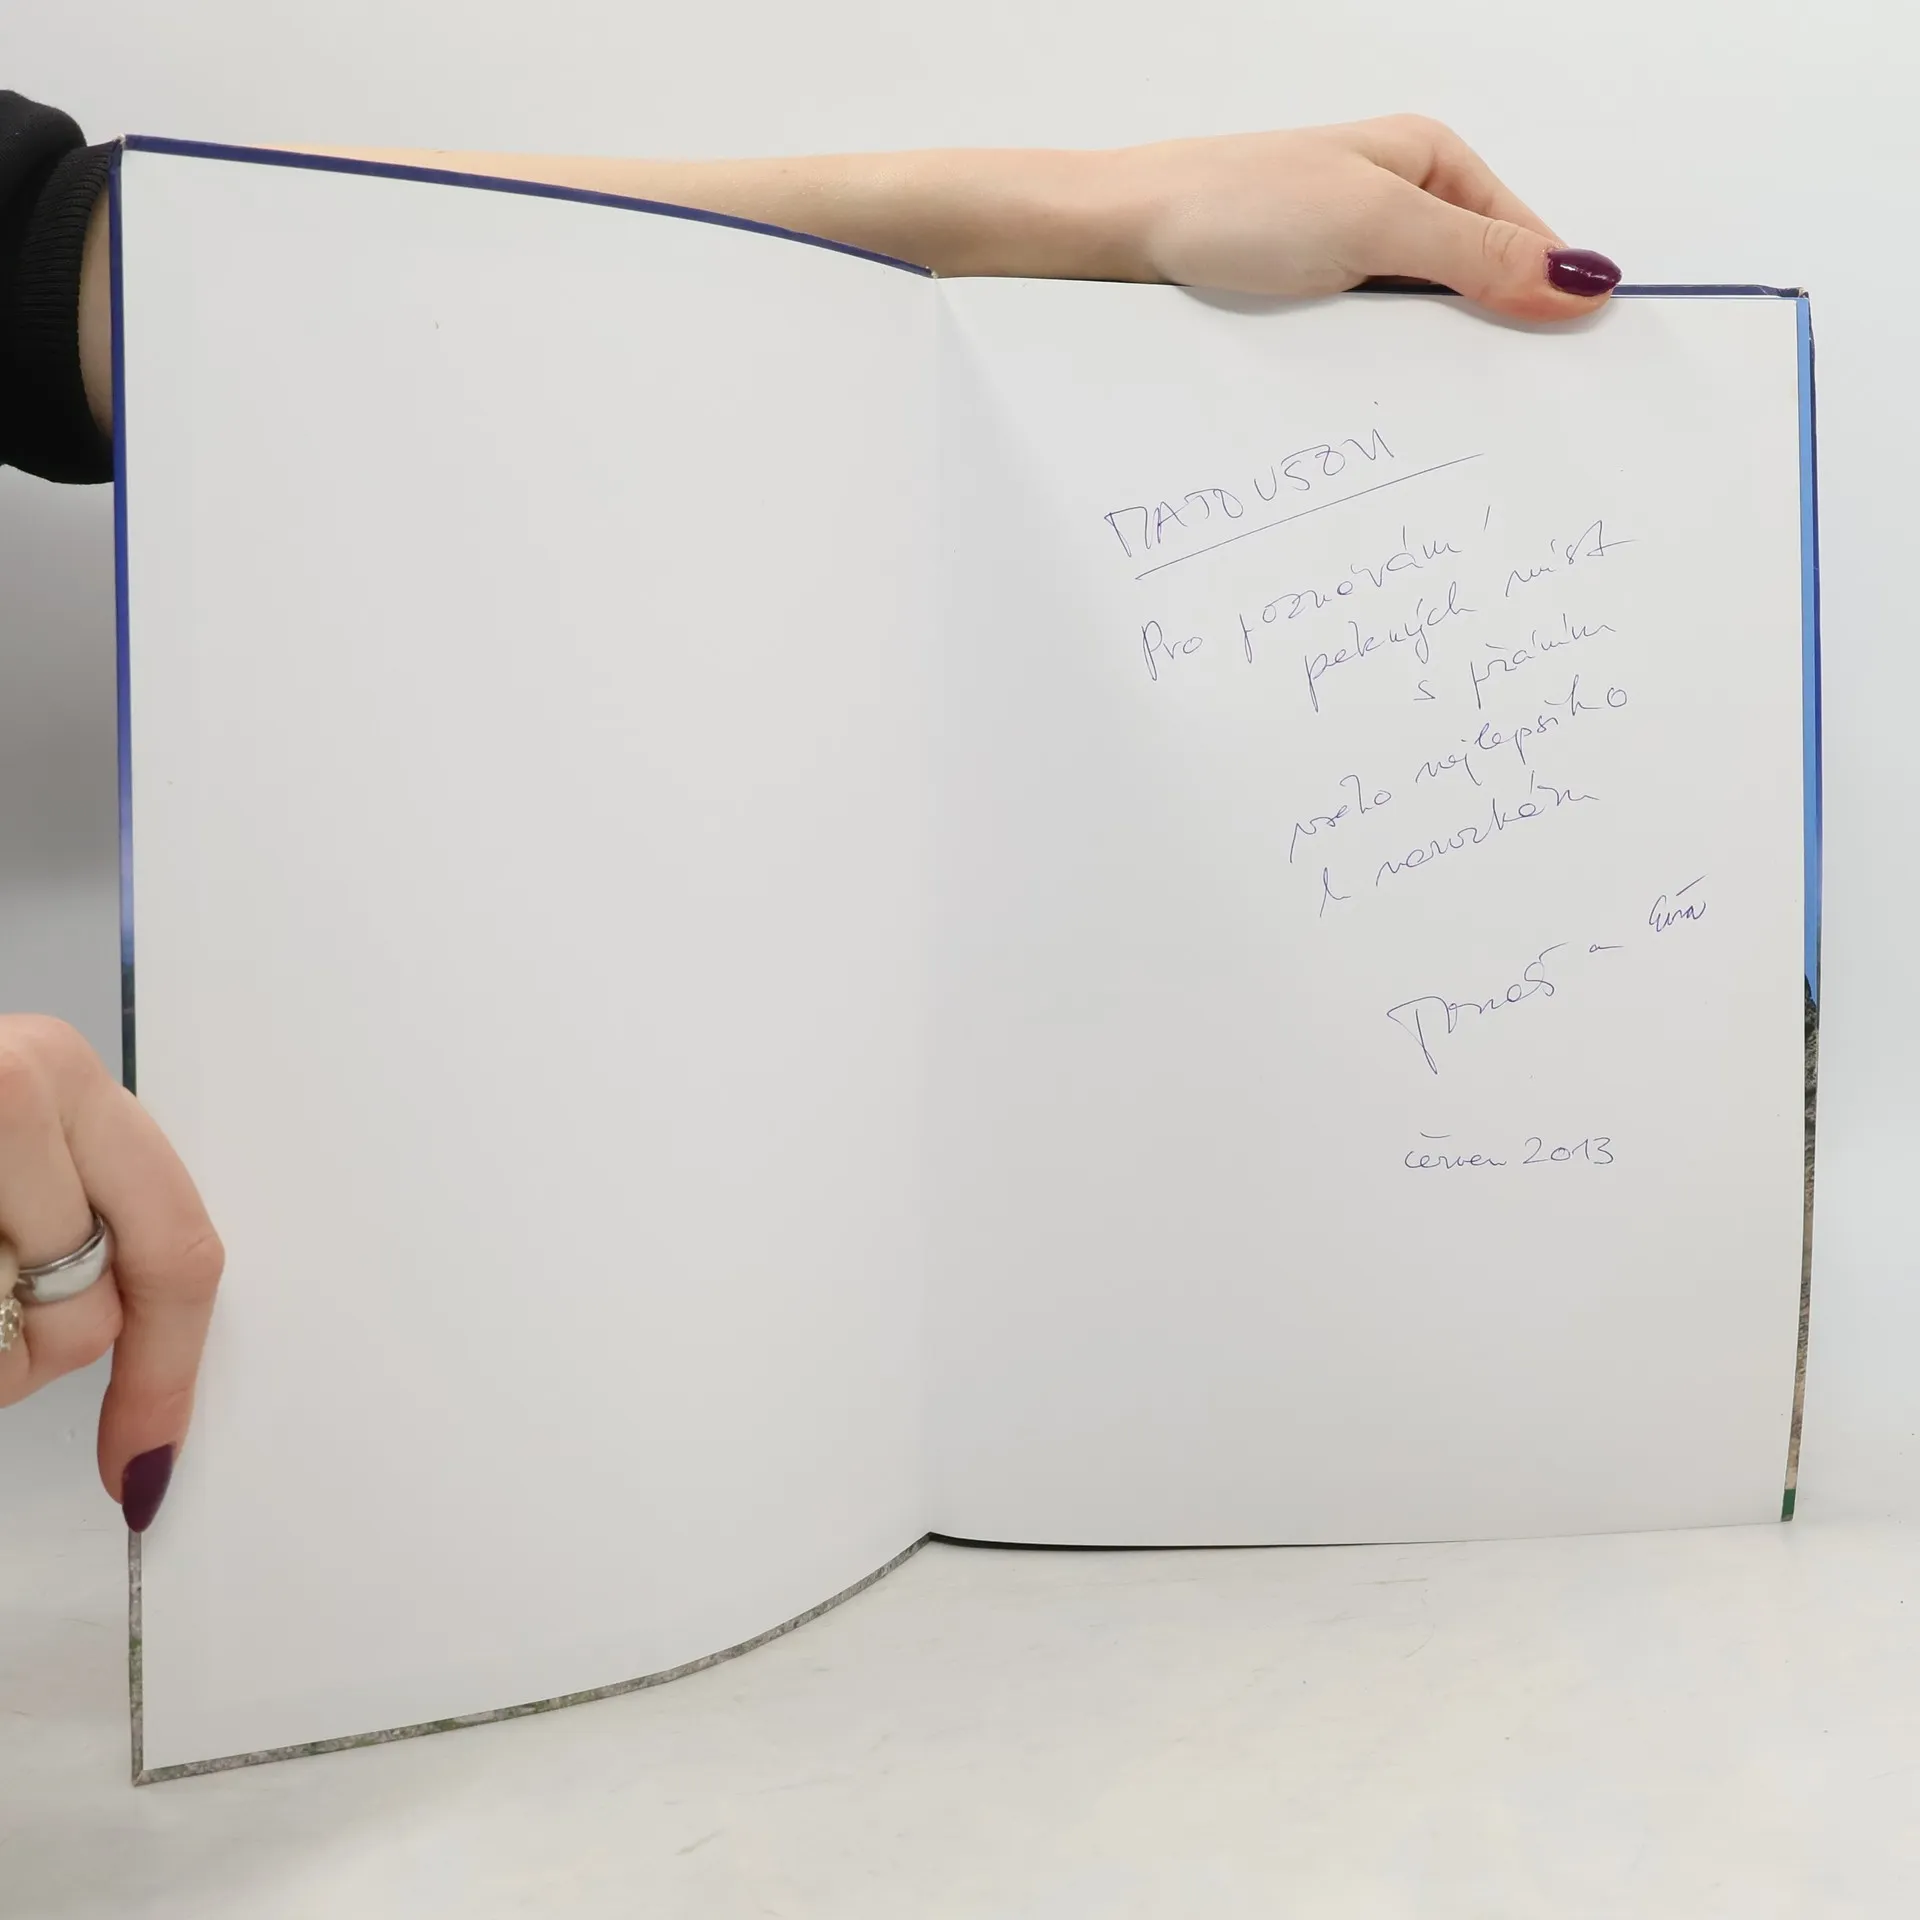 MATOUŠOVI
Pro poznávání
pěkných míst
s přáním
všeho nejlepšího
k narozkám
Tomáš a
červen 2013